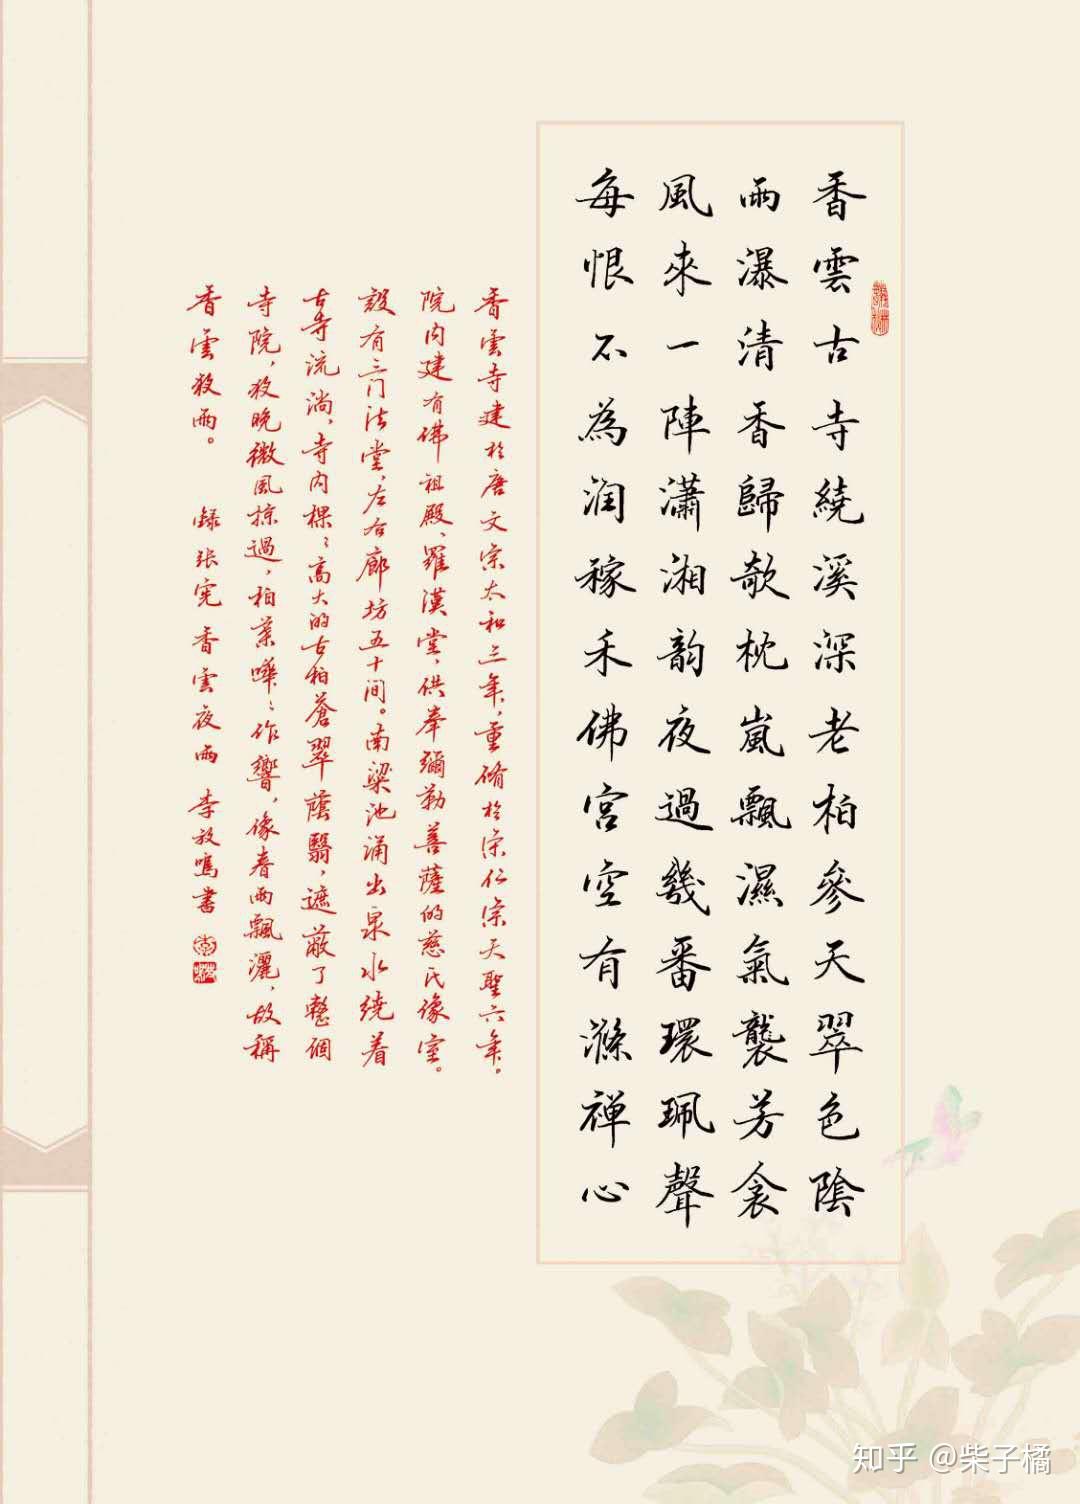 香雲古寺繞溪深老柏參天翠色陰
雨瀑清香歸欹枕嵐飄濕氣襲芳衾
風來一陣瀟湘韵夜過幾番環珮聲
每恨不為润稼禾佛宮空有滌禅心
香雲寺建於唐文宗太和三年，重脩於宋仁宗天聖六年。
院内建有佛祖殿、羅漢堂，供奉彌勒菩薩的慈氏像室。
設有三门法堂，左右廊坊五十间。南梁池涌出泉水繞着
古寺流淌，寺内棵棵高大的古柏蒼翠蔭翳，遮蔽了整個
寺院，夜晚微風掠過，柏葉嘩嘩作響，像春雨飄灑，故稱
香雲夜雨。 録张宪香雲夜雨 李放鳴書
知乎 @柴子橘